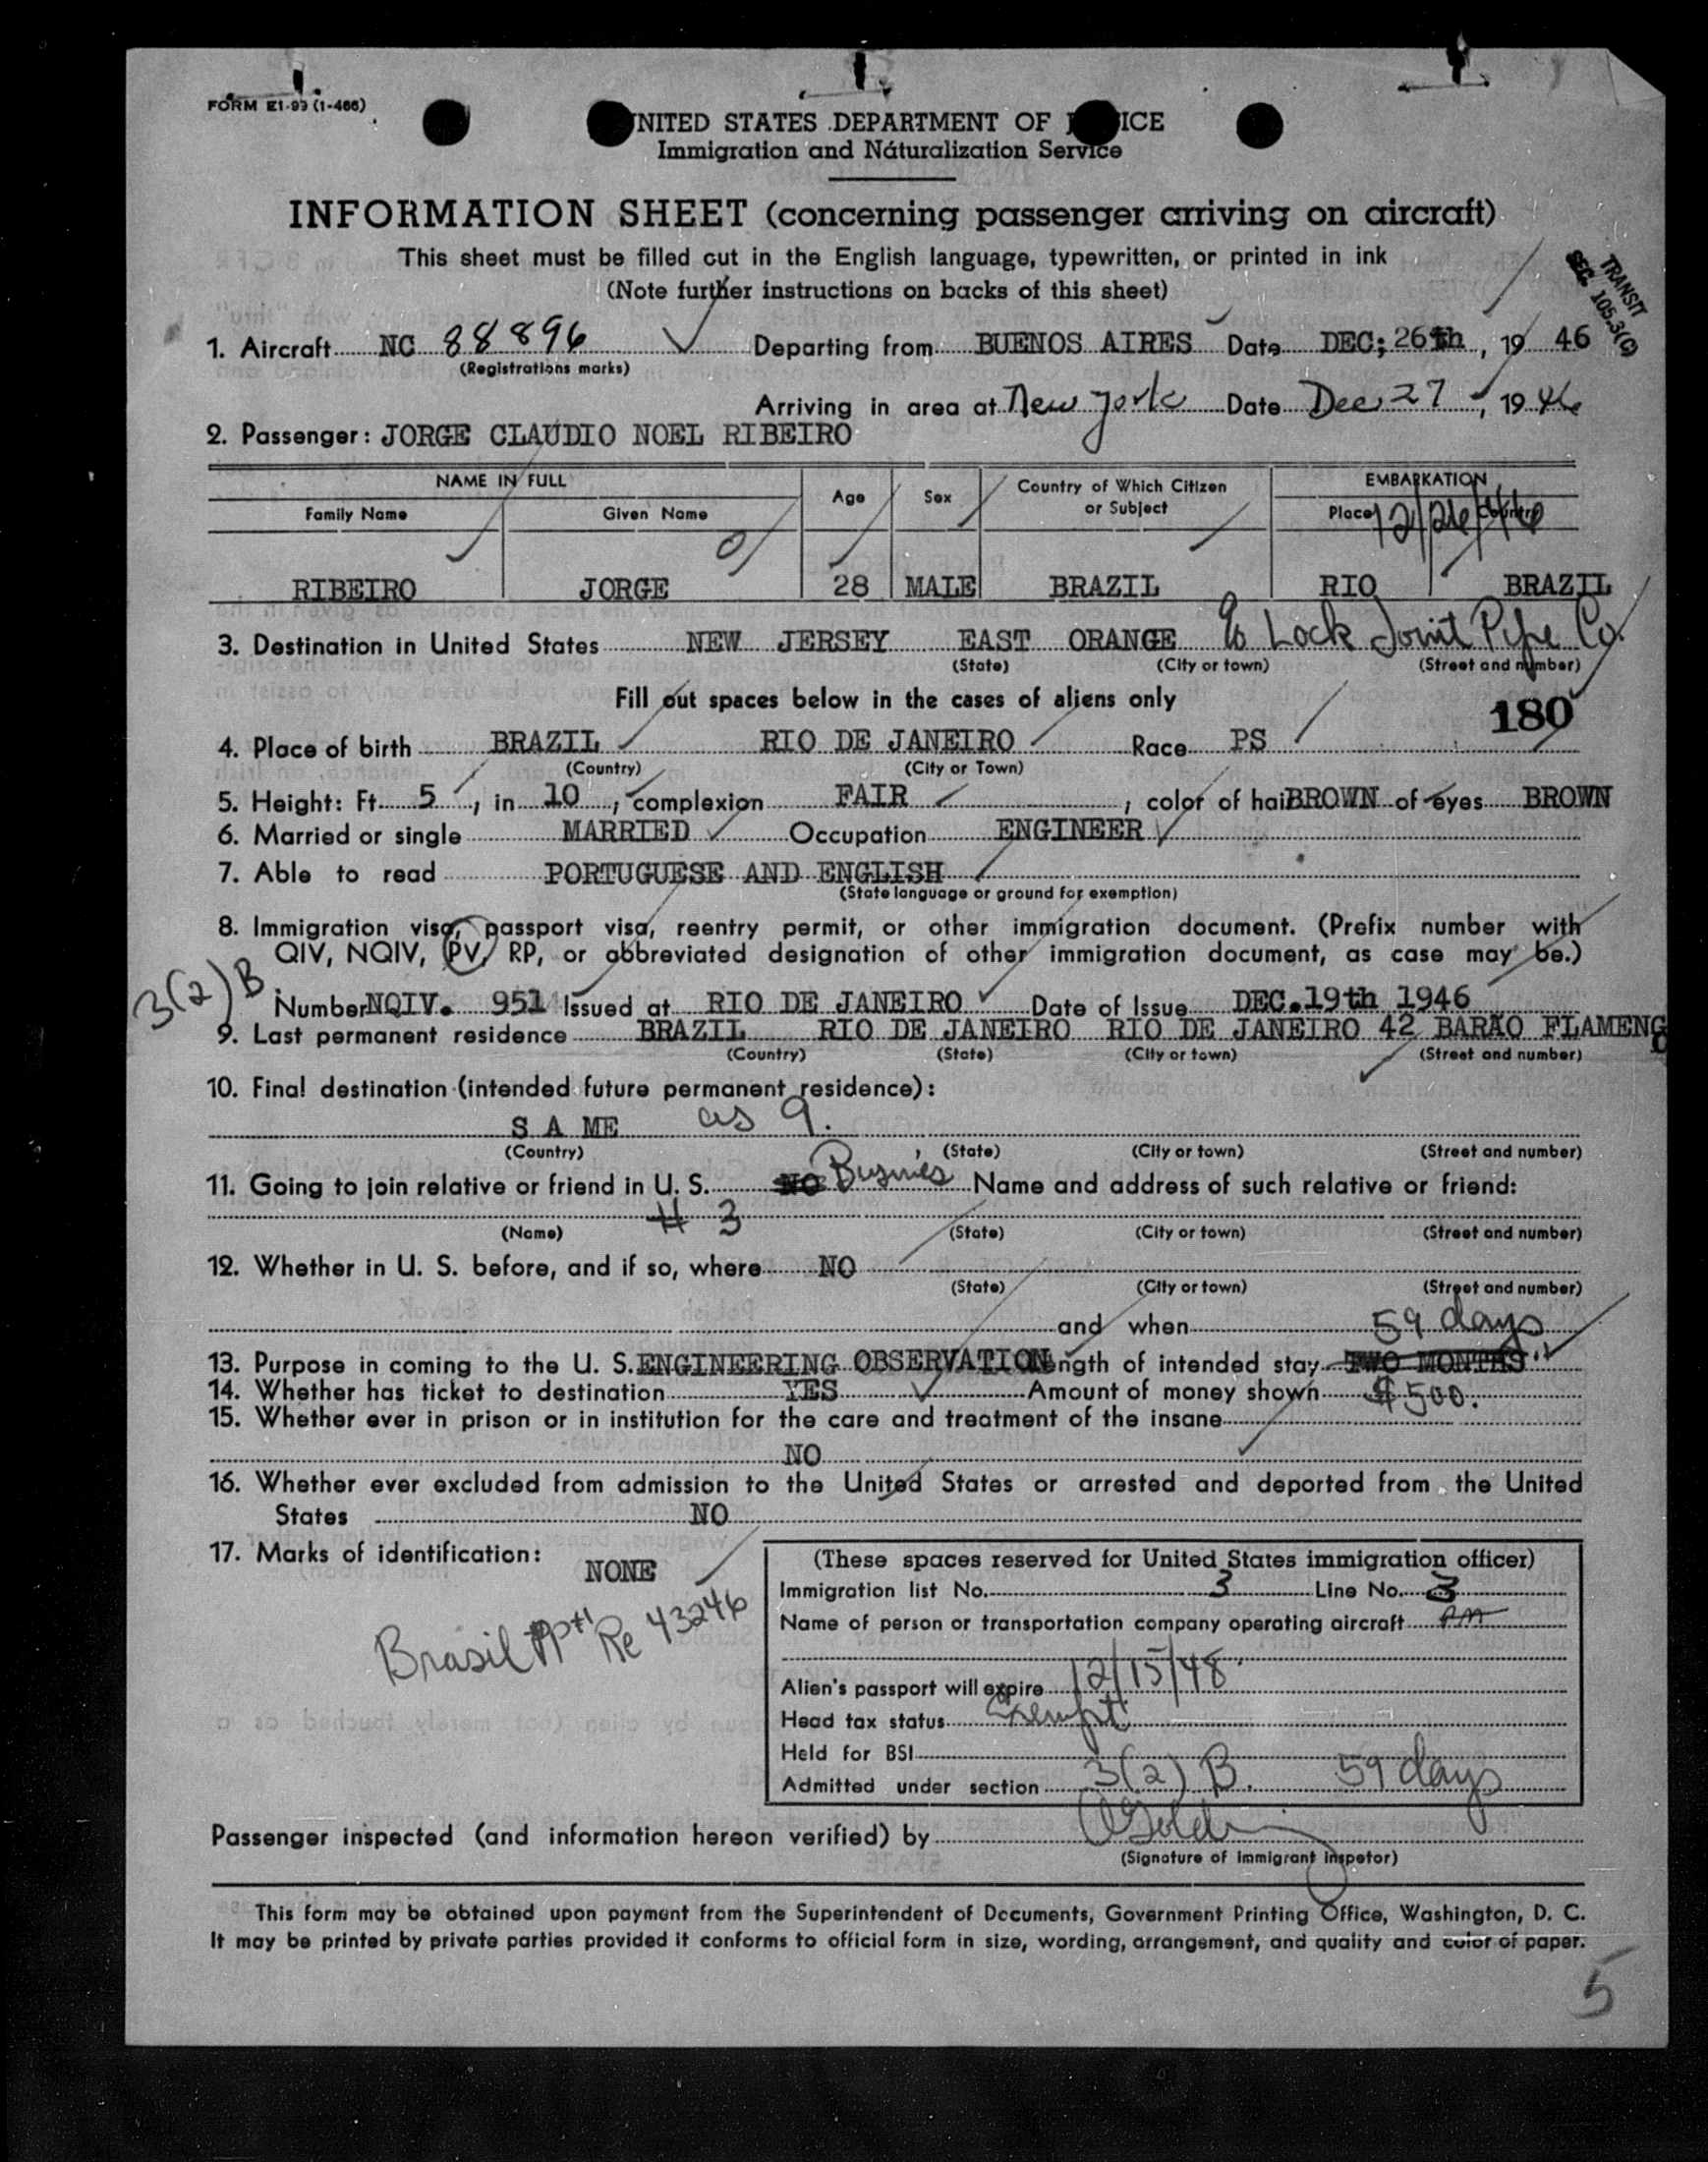 FORM E1-99 (1-466)
UNITED STATES DEPARTMENT OF J ICE
Immigration and Naturalization Service
INFORMATION SHEET (concerning passenger arriving on aircraft)
This sheet must be filled out in the English language, typewritten, or printed in ink
(Note further instructions on backs of this sheet)
TRANSIT
SEC. 105.3(c)
1. Aircraft NC 88896 Departing from BUENOS AIRES Date DEC; 26th, 19 46
(Registrations marks)
Arriving in area at New York Date Dec 27, 19 46
2. Passenger: JORGE CLAUDIO NOEL RIBEIRO
NAME IN FULL Age Sex Country of Which Citizen or Subject EMBARKATION
Family Name Given Name Place Country 12/26/46
RIBEIRO JORGE 28 MALE BRAZIL RIO BRAZIL
3. Destination in United States NEW JERSEY EAST ORANGE c/o Lock Joint Pipe Co.
(State) (City or town) (Street and number)
Fill out spaces below in the cases of aliens only
180
4. Place of birth BRAZIL RIO DE JANEIRO Race PS
(Country) (City or Town)
5. Height: Ft. 5, in 10, complexion FAIR, color of hai BROWN of eyes BROWN
6. Married or single MARRIED Occupation ENGINEER
7. Able to read PORTUGUESE AND ENGLISH
(State language or ground for exemption)
8. Immigration visa, passport visa, reentry permit, or other immigration document. (Prefix number with
QIV, NQIV, PV, RP, or abbreviated designation of other immigration document, as case may be.)
3(2)B
Number NQIV. 951 Issued at RIO DE JANEIRO Date of Issue DEC.19th 1946
9. Last permanent residence BRAZIL RIO DE JANEIRO RIO DE JANEIRO 42 BARÃO FLAMENGO
(Country) (State) (City or town) (Street and number)
10. Final destination (intended future permanent residence):
S A ME as 9.
(Country) (State) (City or town) (Street and number)
11. Going to join relative or friend in U. S. NO Busines Name and address of such relative or friend:
# 3
(Name) (State) (City or town) (Street and number)
12. Whether in U. S. before, and if so, where NO
(State) (City or town) (Street and number)
and when 59 days
13. Purpose in coming to the U. S. ENGINEERING OBSERVATION Length of intended stay TWO MONTHS
14. Whether has ticket to destination YES Amount of money shown $500.
15. Whether ever in prison or in institution for the care and treatment of the insane
NO
16. Whether ever excluded from admission to the United States or arrested and deported from the United
States NO
17. Marks of identification: NONE
Brasil Ppt Re 43246
(These spaces reserved for United States immigration officer)
Immigration list No. 3 Line No. 3
Name of person or transportation company operating aircraft
Alien's passport will expire 12/15/48
Head tax status Exempt
Held for BSI
Admitted under section 3(2) B. 59 days
Passenger inspected (and information hereon verified) by
(Signature of Immigrant Inspetor)
This form may be obtained upon payment from the Superintendent of Documents, Government Printing Office, Washington, D. C.
It may be printed by private parties provided it conforms to official form in size, wording, arrangement, and quality and color of paper.
5